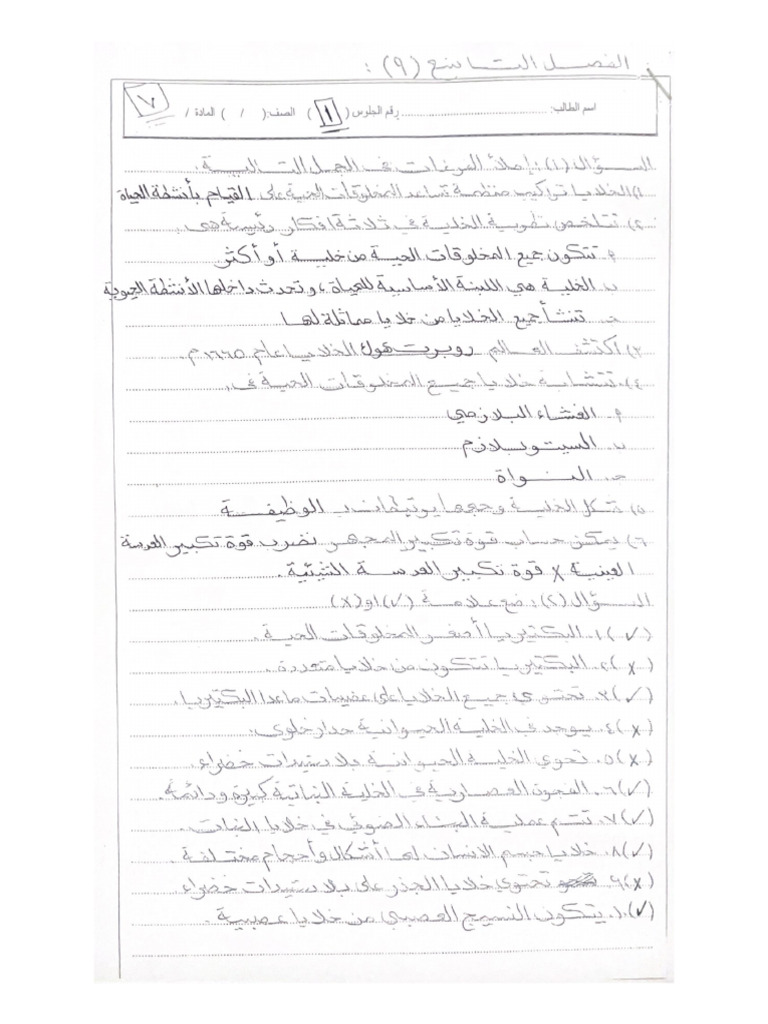 الفصل التاسع (٩) :
٧
اسم الطالب: ........ رقم الجلوس ( ١ ) الصف: ( / ) المادة /
السؤال (١) : إملأ الفراغات في الجمل التالية :
١) الخلايا تراكيب منظمة تساعد المخلوقات الحية على القيام بأنشطة الحياة
٢) تتلخص نظرية الخلية في ثلاثة افكار رئيسة هي
م. تتكون جميع المخلوقات الحية من خلية أو أكثر
ب. الخلية هي اللبنة الأساسية للحياة ، وتحدث داخلها الأنشطة الحيوية
جـ. تنشأ جميع الخلايا من خلايا مماثلة لها
٣) اكتشف العالم روبرت هوك الخلايا عام ١٦٦٥ م.
٤) تتشابه خلايا جميع المخلوقات الحية في.
م. الغشاء البلازمي
ب. السيتوبلازم
جـ. النواة
٥) شكل الخلية وحجمها يرتبطان بـ الوظيفة
٦) يمكن حساب قوة تكبير المجهر نضرب قوة تكبير العدسة
العينية X قوة تكبير العدسة الشيئية.
السؤال (٢) : ضع علامة (✓) او (x)
(✓) ١. البكتيريا أصغر المخلوقات الحية .
(x) ٢. البكتيريا تتكون من خلايا متعددة .
(✓) ٣. تحتوي جميع الخلايا على عضيات ماعدا البكتيريا.
(x) ٤. يوجد في الخلية الحيوانية جدار خلوي.
(x) ٥. تحوي الخلية الحيوانية بلاستيدات خضراء.
(✓) ٦. الفجوة العصارية في الخلية النباتية كبيرة ودائمة.
(✓) ٧. تتم عملية البناء الضوئي في خلايا النبات.
(✓) ٨. خلايا جسم الانسان لها أشكال وأحجام مختلفة .
(x) ٩. تحتوي خلايا الجذر على بلاستيدات خضراء
(✓) ١٠. يتكون النسيج العصبي من خلايا عصبية .